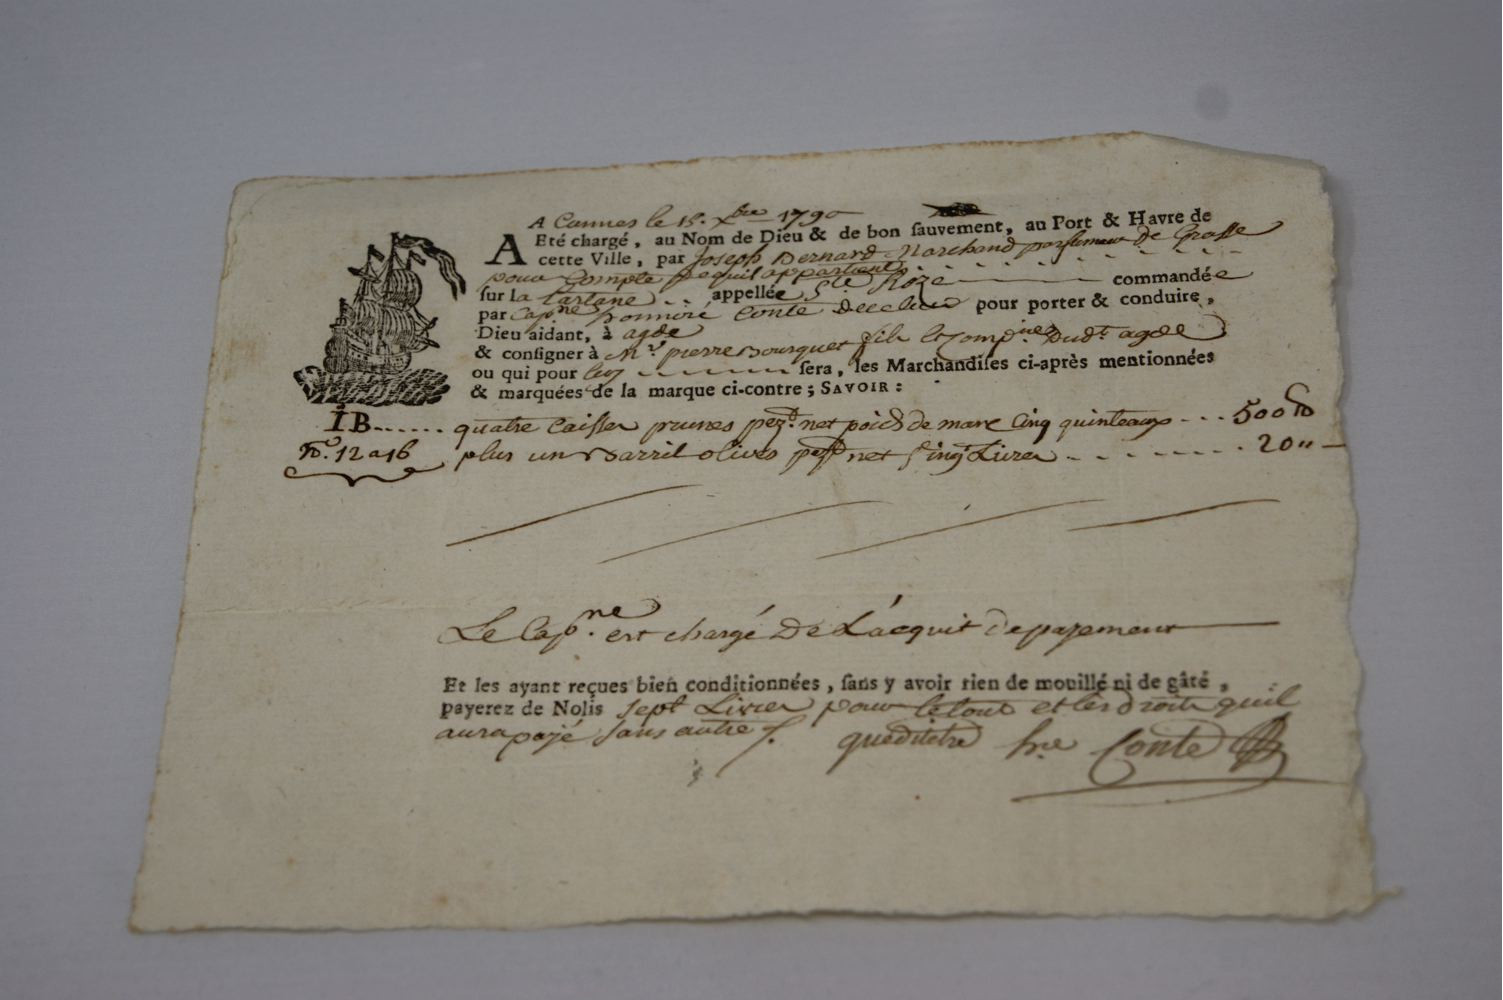 A Cannes le 15. Xbre 1790
A Eté chargé, au Nom de Dieu & de bon sauvement, au Port & Havre de
cette Ville, par Joseph Bernard Marchand parfumeur de Grasse
pour Compte de quil appartiendra
sur la Tartane appellée Ste Roze commandée
par Capne honnoré Conte pour porter & conduire,
Dieu aidant, à agde
& consigner à Mr. pierre Bourguet fils et Compnie Dudt agde
ou qui pour luy sera, les Marchandises ci-après mentionnées
& marquées de la marque ci-contre; SAVOIR:
IB...... quatre Caisses prunes pezt. net poids de marc Cinq quinteaux ... 500 lb
No. 12 a 16 plus un Barril olives pezt net Vingt Livres ........ 20 "
Le Capne. est chargé De L'acquit de payement
Et les ayant reçues bien conditionnées, sans y avoir rien de mouillé ni de gâté,
payerez de Nolis sept Livres pour le tout et les droits quil
aura payé sans autre que dictte hre Conte